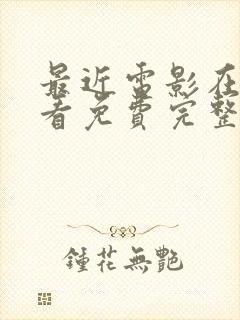 最近雷影在
看免費完整
鍾花無艷